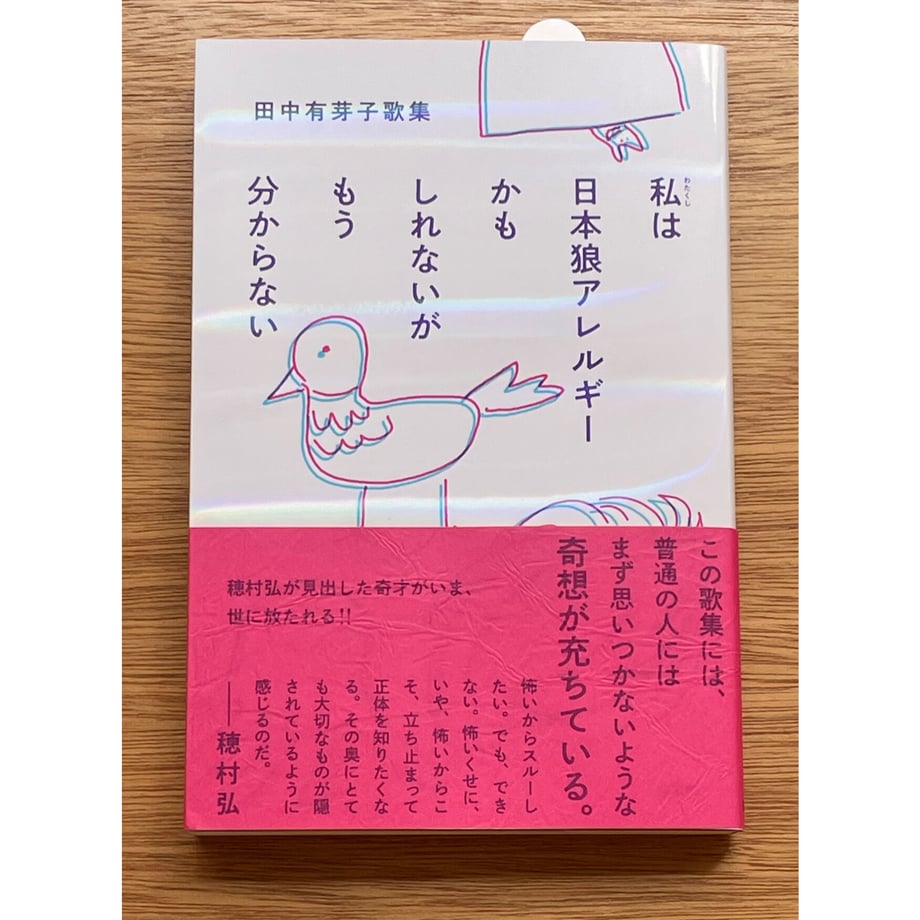 田中有芽子歌集
私は
わたくし
日本狼アレルギー
かも
しれないが
もう
分からない
この歌集には、
普通の人には
まず思いつかないような
奇想が充ちている。
怖いからスルーし
たい。でも、でき
ない。怖いくせに、
いや、怖いからこ
そ、立ち止まって
正体を知りたくな
る。その奥にとて
も大切なものが隠
されているように
感じるのだ。
──穂村弘
穂村弘が見出した奇才がいま、
世に放たれる!!